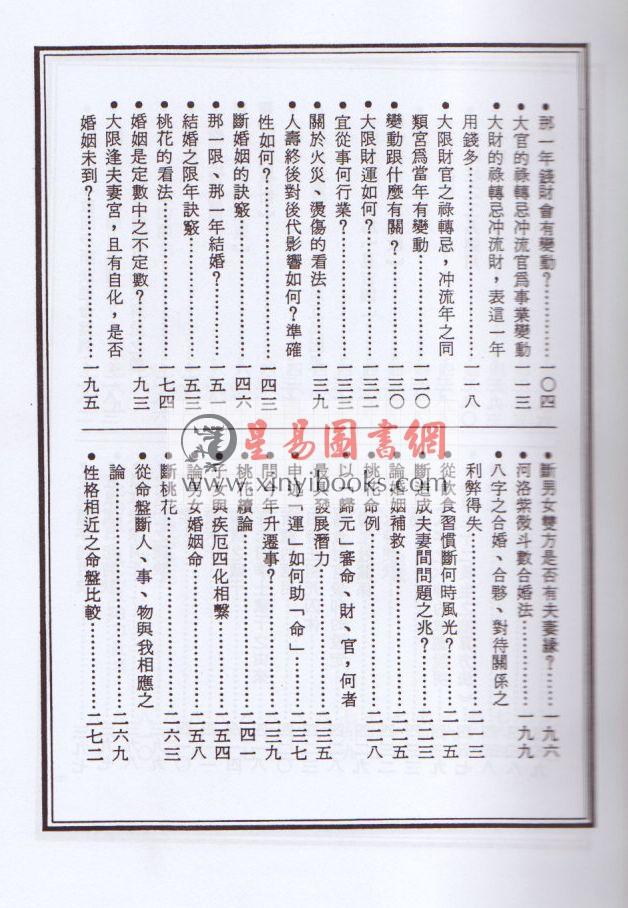 ●那一年錢財會有變動？……一○四
●大官的祿轉忌冲流官爲事業變動　一一三
●大財的祿轉忌冲流財，表這一年
用錢多……一一八
●大限財官之祿轉忌，冲流年之同
類宮爲當年有變動……一二○
●變動跟什麼有關？……一三○
●大限財運如何？……一三二
●宜從事何行業？……一三三
●關於火災、燙傷的看法……一三九
●人壽終後對後代影響如何？準確
性如何？……一四三
●斷婚姻的訣竅……一四六
●那一限、那一年結婚？……一五二
●結婚之限年訣竅……一五三
●桃花的看法……一七四
●婚姻是定數中之不定數？……一九三
●大限逢夫妻宮，且有自化，是否
婚姻未到？……一九五
●斷男女雙方是否有夫妻緣？……一九六
●河洛紫微斗數合婚法……一九九
●八字之合婚、合夥、對待關係之
利弊得失……二一三
●從飲食習慣斷何時風光？……二一五
●斷造成夫妻間問題之兆？……二二三
●論婚姻補救……二二五
●桃花命例……二二八
●以「歸元」審命、財、官，何者
最具發展潛力……二三五
●申述「運」如何助「命」……二三七
●問今年升遷事？……二三九
●桃花續論……二四一
●子女與疾厄四化相繫……二五四
●論男女婚姻命……二五八
●斷桃花……二六三
●從命盤斷人、事、物與我相應之
論……二六九
●性格相近之命盤比較……二七二
星易圖書網
www.xinyibooks.com